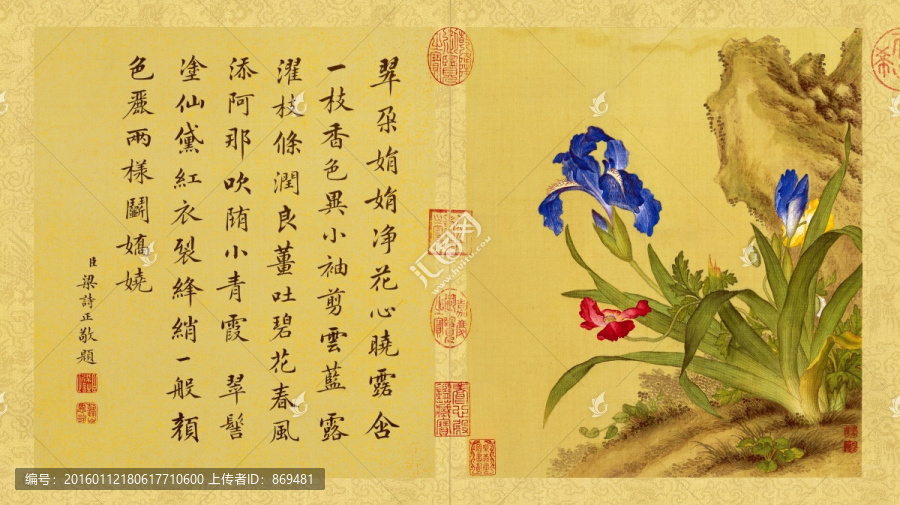 翠朶娟娟净花心曉露含
一枝香色異小袖剪雲藍 露
濯枝條潤良薑吐碧花春風
添阿那吹墮小青霞 翠髻
塗仙黛紅衣裂絳綃一般顏
色麗兩樣鬭嬌嬈
臣梁詩正敬題
汇图网
www.huitu.com
编号：20160112180617710600 上传者ID：869481